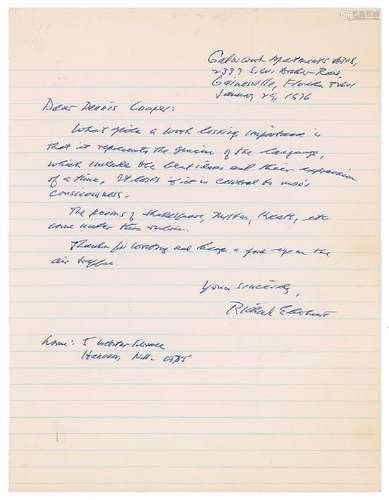 Apartments
Gainesville, Florida
January 25, 1976
Dear Dennis Cooper:
What gives a work lasting importance is
that it represents the genius of the language,
which include the best ideas and their expression
of a time. It lasts if it is central to man's
consciousness.
The poems of Shakespeare, Milton, Keats, etc
come under this
Thanks for writing and keep a good eye on the
air traffic.
Yours sincerely,
Richard Eberhart
home: 5 Webster Terrace
Hanover, N.H.